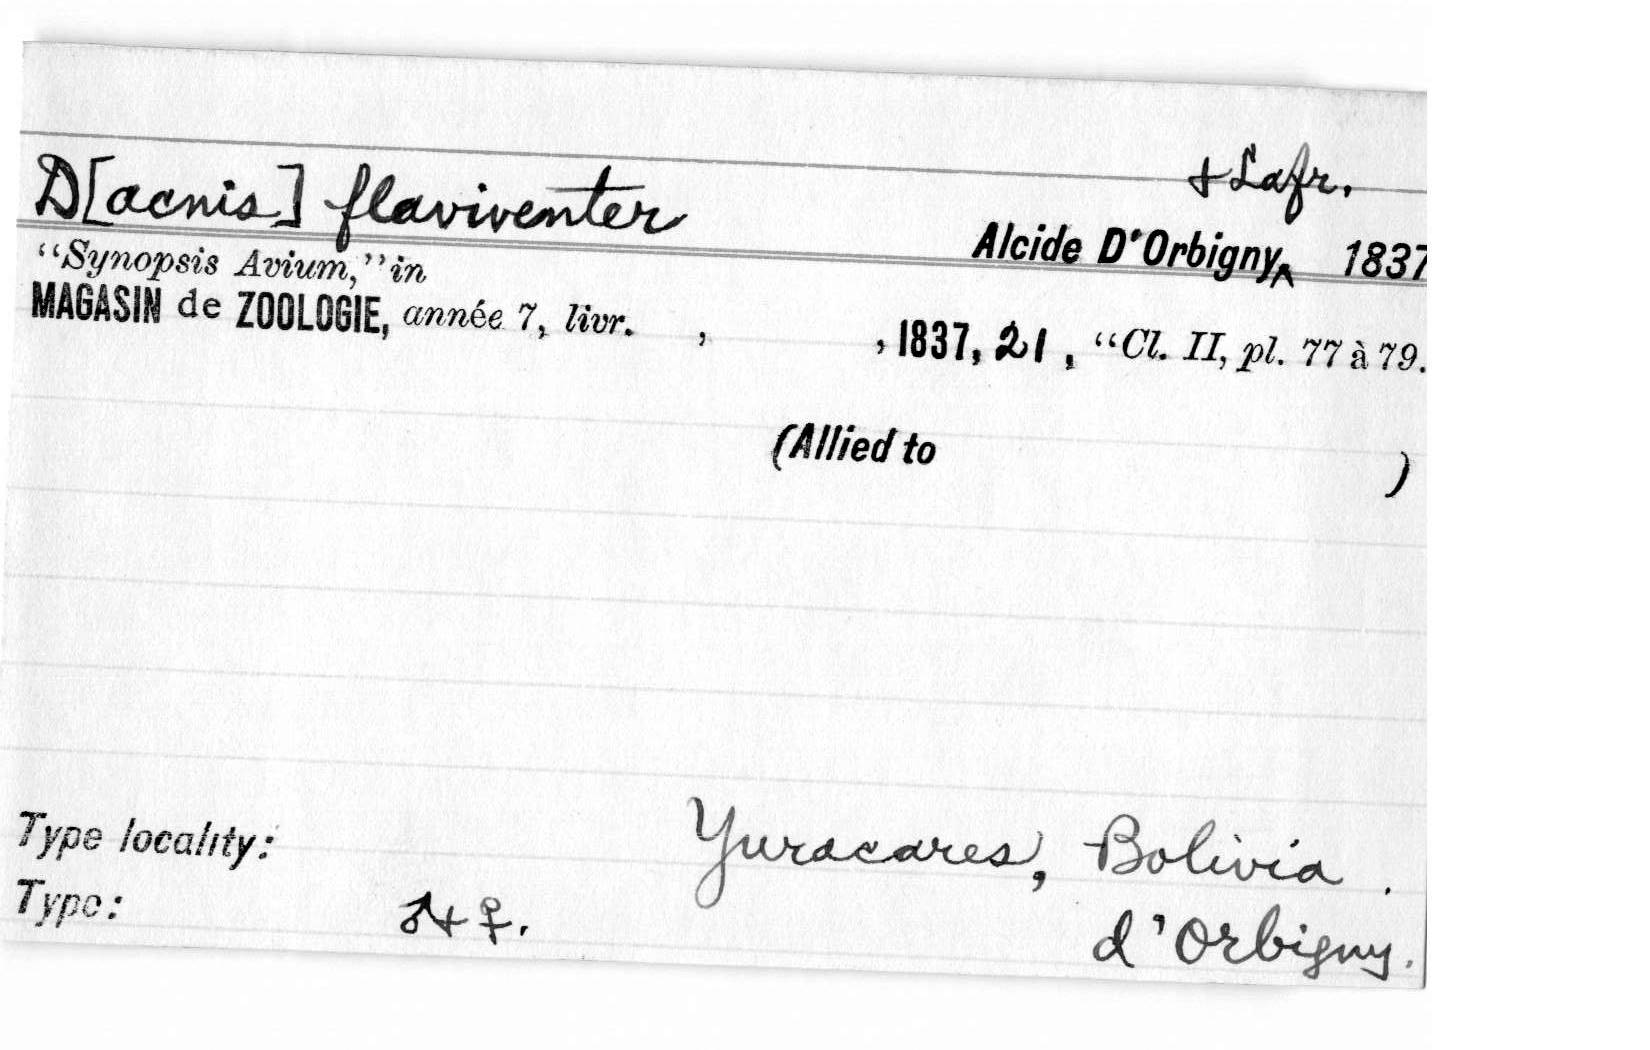 D[acnis] flaviventer
+ Lafr.
Alcide D'Orbigny‸ 1837
“Synopsis Avium,” in
MAGASIN de ZOOLOGIE, année 7, livr. , , 1837, 21 , “Cl. II, pl. 77 à 79.
(Allied to )
Type locality: Yuracares, Bolivia .
Type: ♂ + ♀. d'Orbigny.